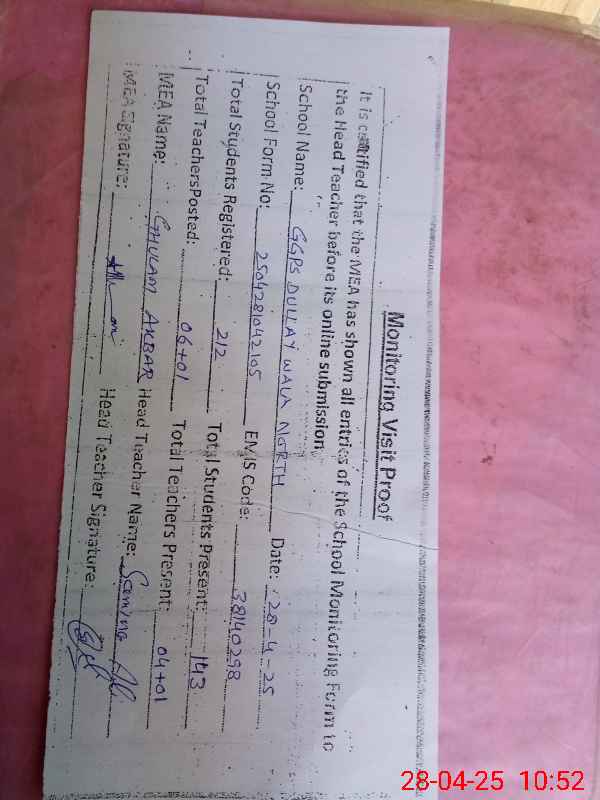 Monitoring Visit Proof
It is certified that the MEA has shown all entries of the School Monitoring Form to
the Head Teacher before its online submission
School Name: GGPS DULLAY WALA NORTH Date: 28-4-25
School Form No: 2504281042105 EMIS Code: 38140298
Total Students Registered: 212 Total Students Present: 143
Total TeachersPosted: 06+01 Total Teachers Present: 04+01
MEA Name: GHULAM AKBAR Head Teacher Name: Samina
MEA Signature: Head Teacher Signature:
28-04-25 10:52